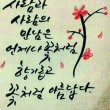 사람과
사람의
만남은
언제나 꽃처럼
향기롭고
꽃처럼 아름답다